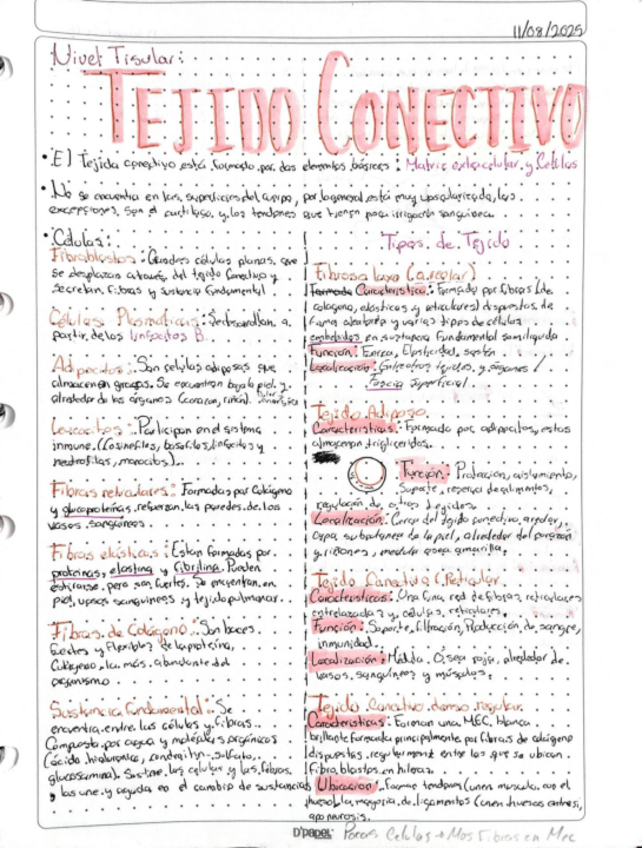 11/08/2025
Nivel Tisular:
TEJIDO CONECTIVO
• El Tejida conectivo está formado por dos elementos básicos: Matriz extracelular y Células
• No se encuentra en las superficies del cuerpo, por lo general está muy vascularizada, las
excepciones son el cartilago y los tendones que tienen poca irrigación sanguinea
• Células:
Fibroblastos: Grandes células planas, que
se desplazan a través del tejido conectivo y
secretan fibras y sustancia fundamental
Células Plasmáticas: Se desarrollan a
partir de los linfocitos B.
Adipocitos: Son celulas adiposas que
almacenan grasas. Se encuentran bajo la piel y
alrededor de los órganos (corazon, riñón).
Leucocitos: Participan en el sistema
inmune. (Eosinofilos, basofilos, linfocitos y
neutrofilos, monocitos).
Fibras reticulares: Formadas por Colágeno
y glucoproteínas, refuerzan las paredes de los
vasos sanguineos
Fibras elásticas: Estan formadas por
proteinas, elastina y fibrilina. Pueden
estirarse, pero son fuertes. Se encuentran en
piel, vasos sanguineos y tejido pulmonar.
Fibras de Colágeno: Son haces
fuertes y flexibles de la proteína,
Colágeno la más abundante del
organismo
Sustancia fundamental: Se
encuentra entre las células y fibras.
Compuesta por agua y moléculas orgánicas
(ácido hialuronico, condroitin sulfato,
glucosamina). Sostiene las celulas y las fibras,
y las une y ayuda en el cambio de sustancias
Tipos de Tejido
Fibroso laxo (areolar)
Caracteristica: Formado por fibras (de
colageno, elásticas y reticulares) dispuestas de
forma aleatoria y varios tipos de células
embebidas en sustancia fundamental semiliquida
Función: Fuerza, Elasticidad, sostén
Localización: Entre otros tejidos y órganos /
Fascia superficial
Tejido Adiposo
Caracteristicas: Formado por adipocitos, estos
almacenan trigliceridos.
Función: Protección, aislamiento,
Soporte, reserva de alimentos,
regulación de otros tejidos
Localización: Cerca del tejido conectivo areolar,
Capa subcutanea de la piel, alrededor del corazon
y riñones, medula osea amarilla.
Tejido Conectivo (Reticular
Caracteristicas: Una fina red de fibras reticulares
entrelazadas y celulas reticulares.
Función: Soporte, filtración, Producción de sangre,
inmunidad.
Localización: Médula Ósea roja, alrededor de
vasos sanguineos y músculos.
Tejido Conectivo denso regular
Caracteristicas: Forman una MEC blanca
brillante formada principalmente por fibras de colágeno
dispuestas regularmente entre los que se ubican
fibroblastos en hileras
Ubicación: Forma tendones (unen musculo con el
hueso) la mayoria de ligamentos (unen huesos entre si,
aponeurosis.
D'papel
Pocas Celulas + Mas Fibras en Mec